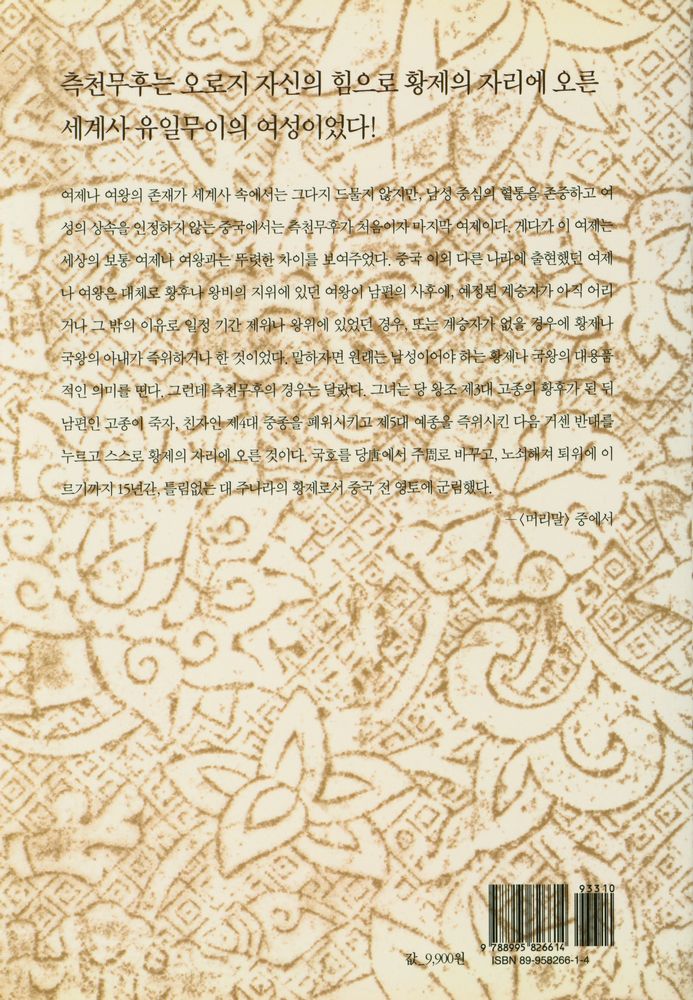 측천무후는 오로지 자신의 힘으로 황제의 자리에 오른
세계사 유일무이의 여성이었다!
여제나 여왕의 존재가 세계사 속에서는 그다지 드물지 않지만, 남성 중심의 혈통을 존중하고 여
성의 상속을 인정하지 않는 중국에서는 측천무후가 처음이자 마지막 여제이다. 게다가 이 여제는
세상의 보통 여제나 여왕과는 뚜렷한 차이를 보여주었다. 중국 이외 다른 나라에 출현했던 여제
나 여왕은 대체로 황후나 왕비의 지위에 있던 여왕이 남편의 사후에, 예정된 계승자가 아직 어리
거나 그 밖의 이유로 일정 기간 제위나 왕위에 있었던 경우, 또는 계승자가 없을 경우에 황제나
국왕의 아내가 즉위하거나 한 것이었다. 말하자면 원래는 남성이어야 하는 황제나 국왕의 대용품
적인 의미를 띤다. 그런데 측천무후의 경우는 달랐다. 그녀는 당 왕조 제3대 고종의 황후가 된 뒤
남편인 고종이 죽자, 친자인 제4대 중종을 폐위시키고 제5대 예종을 즉위시킨 다음 거센 반대를
누르고 스스로 황제의 자리에 오른 것이다. 국호를 당唐에서 주周로 바꾸고, 노쇠해져 퇴위에 이
르기까지 15년간, 틀림없는 대 주나라의 황제로서 중국 전 영토에 군림했다.
–〈머리말〉 중에서
93310
9 788995 826614
값_9,900원
ISBN 89-958266-1-4